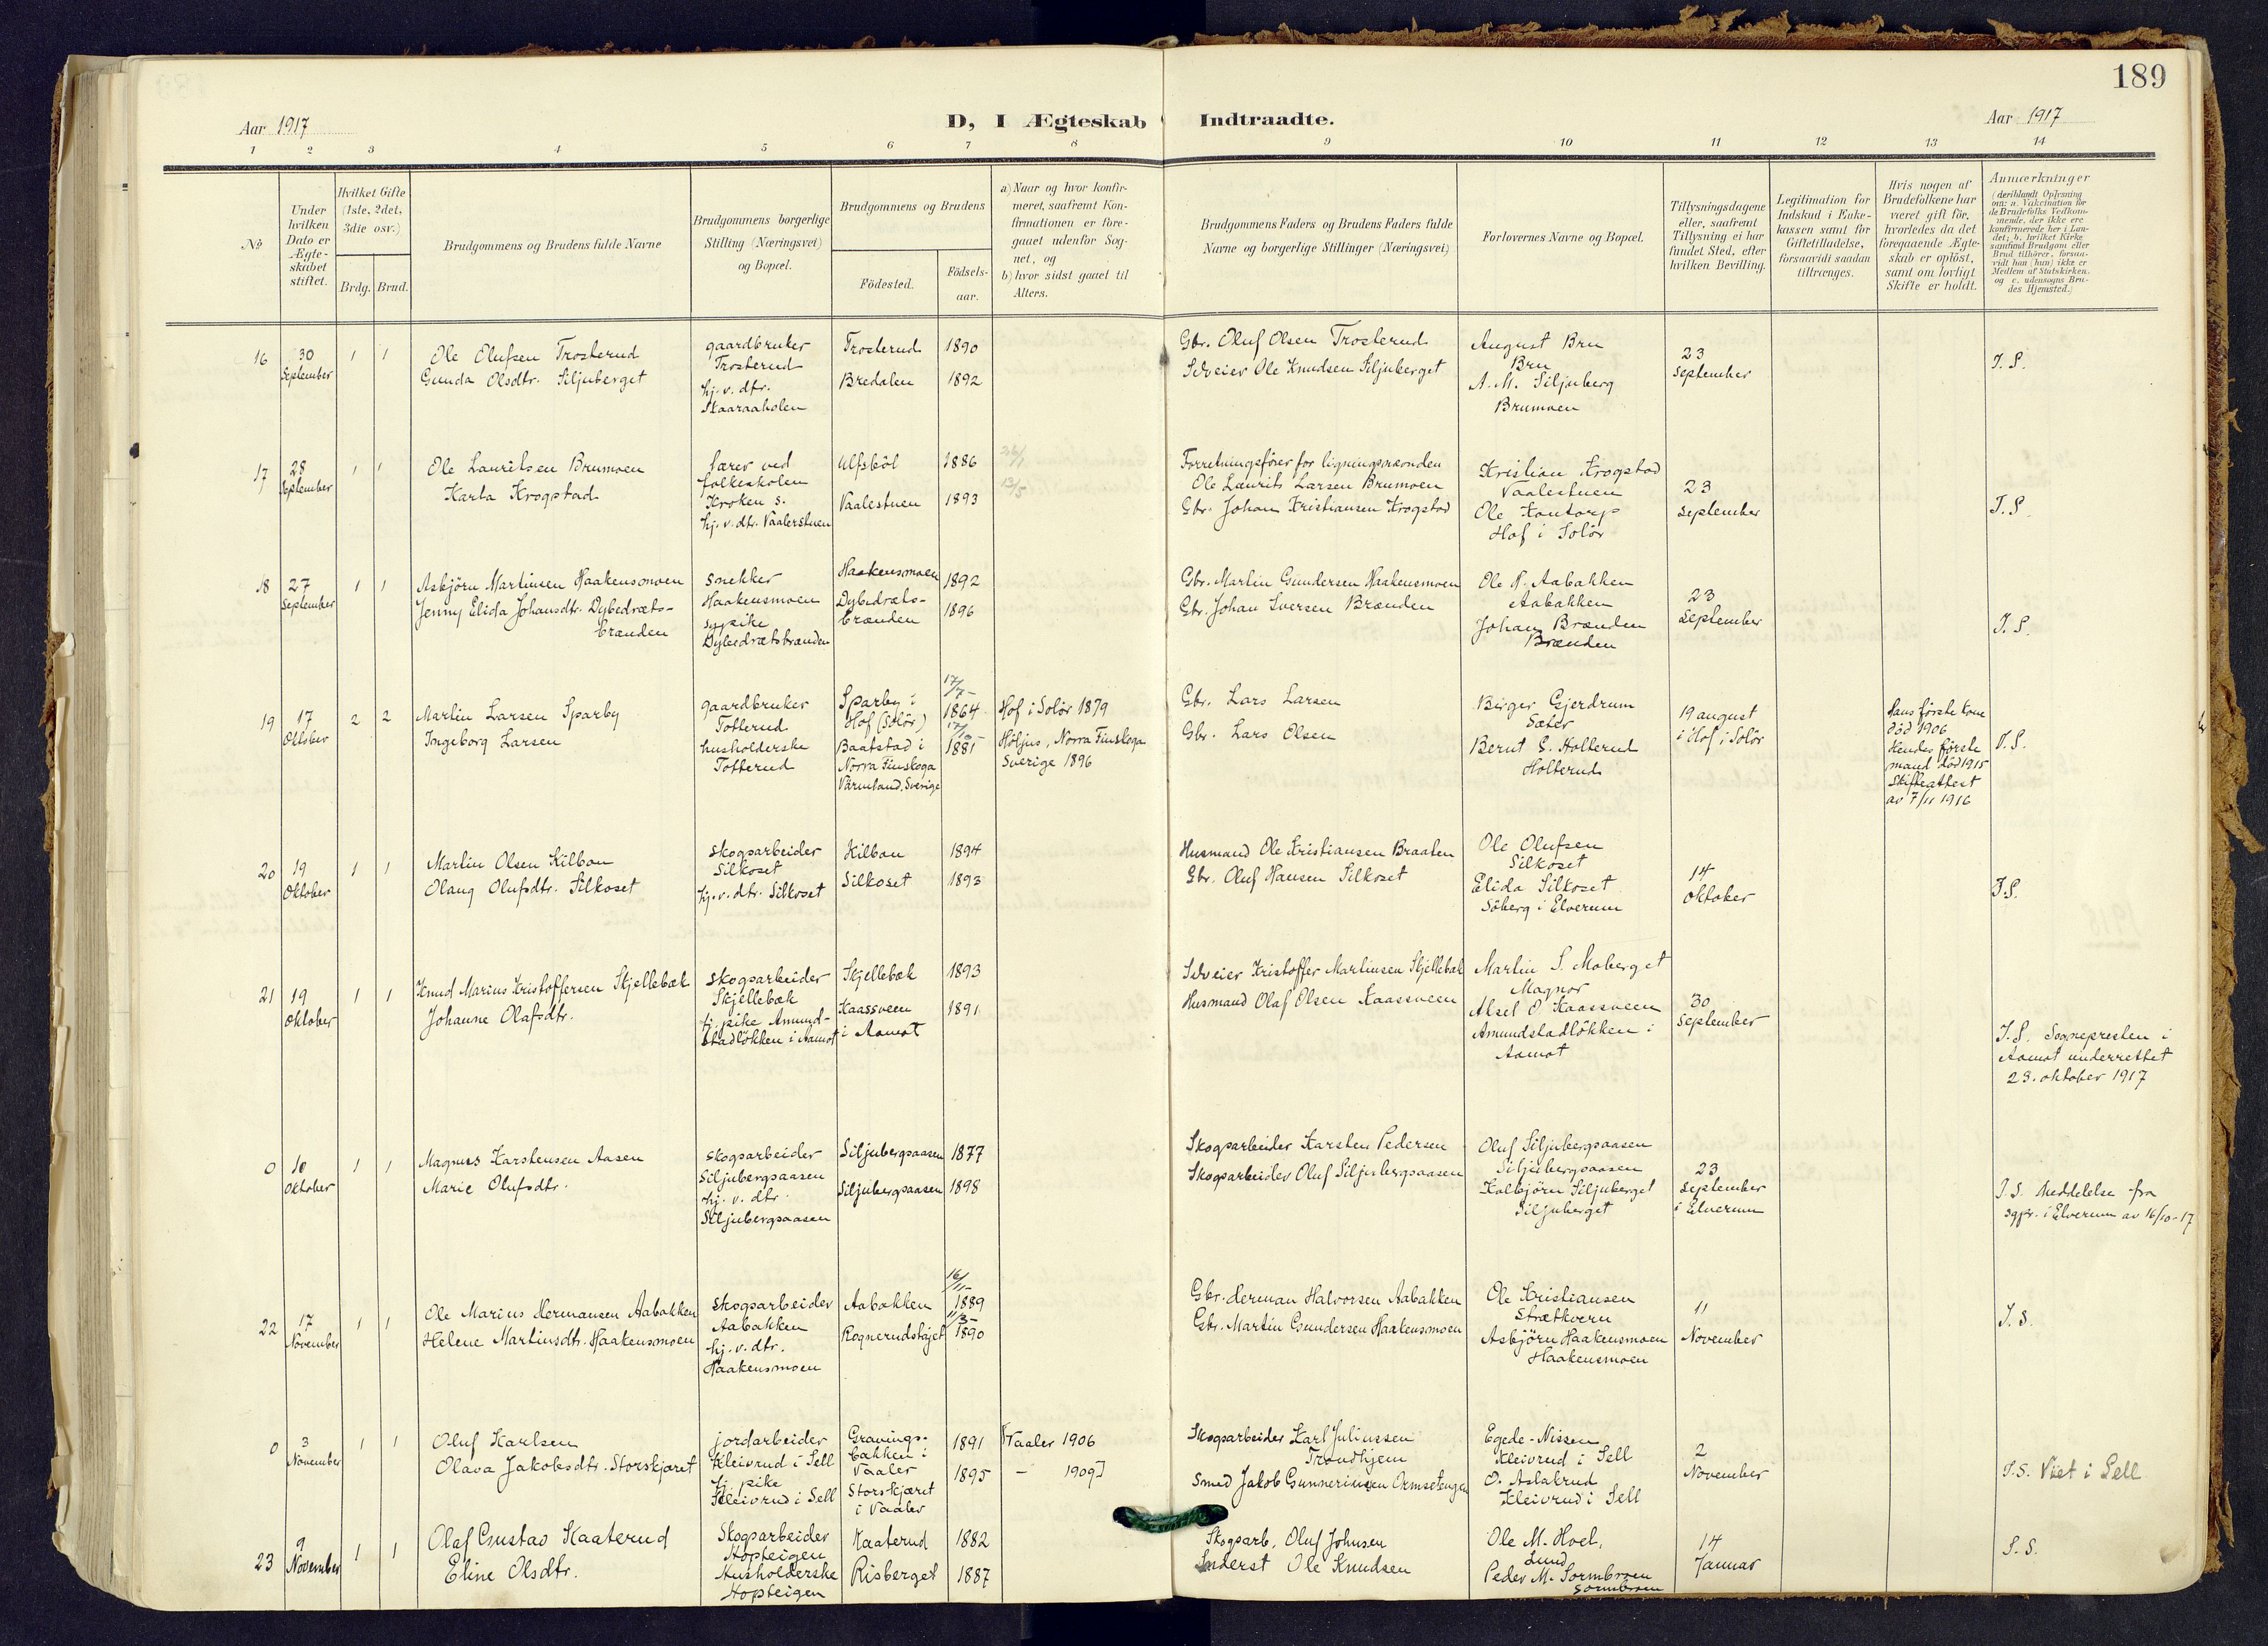 189
Aar 1917
D, I Ægteskab Indtraadte.
Aar 1917
1 2 3 4 5 6 7 8 9 10 11 12 13 14
№
Under hvilken Dato er Ægteskabet stiftet.
Hvilket Gifte (1ste, 2det, 3die osv.)
Brdg. Brud.
Brudgommens og Brudens fulde Navne
Brudgommens borgerlige Stilling (Næringsvei) og Bopæl.
Brudgommens og Brudens
Födested.
Födsels-aar.
a) Naar og hvor konfirmeret, saafremt Konfirmationen er foregaaet udenfor Sognet, og
b) hvor sidst gaaet til Alters.
Brudgommens Faders og Brudens Faders fulde Navne og borgerlige Stillinger (Næringsvei)
Forlovernes Navne og Bopæl.
Tillysningsdagene eller, saafremt Tillysning ei har fundet Sted, efter hvilken Bevilling.
Legitimation for Indskud i Enkekassen samt for Giftetilladelse, forsaavidt saadan tiltrænges.
Hvis nogen af Brudefolkene har været gift før, hvorledes da det foregaaende Ægteskab er oplöst, samt om lovligt Skifte er holdt.
Anmærkninger
(deriblandt Oplysning om: a. Vakcination for de Brudefolks Vedkommende, der ikke ere konfirmerede her i Landet; b. hvilket Kirke samfund Brudgom eller Brud tilhörer, forsaavidt han (hun) ikke er Medlem af Statskirken. og c. udensogns Brudes Hjemsted.)
16
30
September
1 1
Ole Olufsen Trosterud
Gunda Olsdtr. Siljuberget
gaardbruker
Trosterud
hj. v. dtr.
Skaaraaholen
Trosterud 1890
Bredalen 1892
Gbr. Oluf Olsen Trosterud
Selveier Ole Knudsen Siljuberget
August Bru
Bru
A. M. Siljuberg
Brumoen
23
September
I. S.
17
28
September
1 1
Ole Lauritsen Brumoen
Karla Krogstad
lærer ved
folkeskolen
Kroken s.
hj. v. dtr. Vaalerstuen
Ulfsböl 1886
Vaalestuen 1893
13/5
Forretningsförer for ligningsmænden
Ole Laurits Larsen Brumoen
Gbr. Johan Kristiansen Krogstad
Kristian Krogstad
Vaalestuen
Ole Kontorp
Hof i Solör
23
september
I. S.
18
27
September
1 1
Asbjörn Martinsen Haakensmoen
Jenny Elida Johansdtr. Dybedræts-
brænden
Snekker
Haakensmoen
sypike
Dybedrætsbrænden
Haakensmoen 1892
Dybedræts-
brænden 1896
Gbr. Martin Gundersen Haakensmoen
Gbr. Johan Iversen Brænden
Ole H. Aabakken
Aabakken
Johan Brænden
Brænden
23
September
I. S.
19
17
Oktober
2 2
Martin Larsen Sparby
Ingeborg Larsen
gaardbruker
Totterud
husholderske
Totterud
Sparby i
Hof (Solör)
17/7-
1864
Baatstad i
Norra Finskoga
Värmland. Sverige
1881
Hof i Solör 1879
Höljus, Norra Finskoga
Sverige 1896
Gbr. Lars Larsen
Gbr. Lars Olsen
Birger Gjerdrum
Sæter
Bernt E. Holterud
Holterud
19 august
i Hof i Solör
Hans förste kone
död 1906
Hendes förste
mand död 1915
Skifteattest
av 7/11 1916
I. S.
20
19
Oktober
1 1
Martin Olsen Kilbon
Olaug Olufsdtr. Silkoset
Skogsarbeider
Silkoset
hj. v. dtr. Silkoset
Kilbon 1894
Silkoset 1893
Husmand Ole Kristiansen Braaten
Gbr. Oluf Hansen Silkoset
Ole Olufsen
Silkoset
Elida Silkoset
Söberg i Elverum
14
Oktober
I. S.
21
19
Oktober
1 1
Knud Marius Kristoffersen Skjellebæk
Johanne Olafsdtr.
skogsarbeider
Skjellebæk
tj. pike Amund-
stadlökken i Aamot
Skjellebæk 1893
Kaassveen
i Aamot 1891
Selveier Kristoffer Martinsen Skjellebæk
Husmand Olaf Olsen Kaassveen
Martin S. Moberget
Magnor
Aksel O Kaassveen
Amundstadlökken i
Aamot
30
September
I. S. Sognepresten i
Aamot underrettet
23. oktober 1917
0
10
Oktober
1 1
Magnus Karstensen Aasen
Marie Olufsdtr.
skogsarbeider
Siljubergsaasen
hj. v. dtr.
Siljubergsaasen
Siljubergsaasen 1877
Siljubergsaasen 1898
Skogsarbeider Karsten Pedersen
Skogsarbeider Oluf Siljubergsaasen
Oluf Siljubergsaasen
Siljubergsaasen
Kolbjörn Siljuberget
Siljuberget
23
September
i Elverum
I. S. Meddelelse fra
sgpr. i Elverum av 16/10-17
22
17
November
1 1
Ole Marius Hermansen Aabakken
Helene Martinsdtr. Haakensmoen
Skogsarbeider
Aabakken
hj. v. dtr.
Haakensmoen
Aabakken
16/11-
1889
Rognerudshöjet
11/3-
1890
Gbr. Herman Halvorsen Aabakken
Gbr. Martin Gundersen Haakensmoen
Ole Kristiansen
Strætkvern
Asbjörn Haakensmoen
Haakensmoen
11
November
I. S.
0
3
November
1 1
Oluf Karlsen
Olava Jakobsdtr. Storskjæret
jordarbeider
Kleivrud i Sell
tj. pike
Kleivrud i Sell
Gravings-
bakken i
Vaaler
1891
Storskjæret
i Vaaler
1895
[Vaaler 1906
- 1909]
Skogsarbeider Karl Juliussen
Trondhjem
Smed Jakob Gunneriussen Ormsetengen
Egede-Nissen
Kleivrud i Sell
O. Aslakrud
Kleivrud i Sell
2
November
I. S. Viet i Sell
23
9
November
1 1
Olaf Gustav Kaaterud
Eline Olsdtr.
Skogsarbeider
Hopsteigen
Husholderske
Hopsteigen
Kaaterud 1882
Risberget 1887
Skogsarb. Oluf Johnsen
Inderst Ole Knudsen
Ole M. Hoel,
Lund
Peder M. Sormbroen
Sormbroen
14
Januar
S. S.